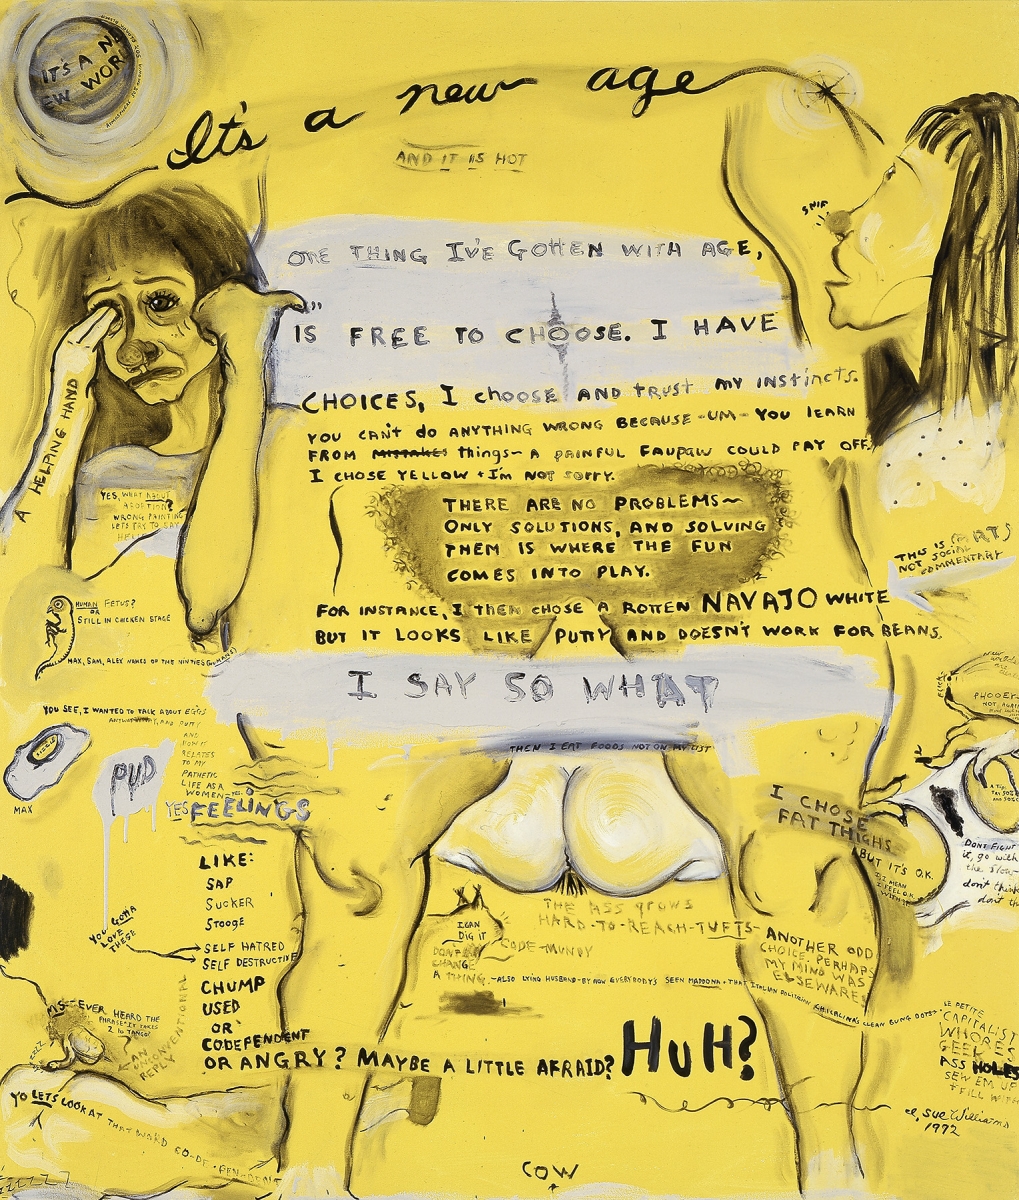 IT'S A N
EW WOR
It's a new age
AND IT IS HOT
SNIF
ONE THING I'VE GOTTEN WITH AGE,
IS FREE TO CHOOSE. I HAVE
CHOICES, I choose AND trust my instincts.
YOU CAN'T do ANYTHING WRONG BECAUSE -UM- YOU LEARN
FROM MISTAKES things~ A PAINFUL FAUPAW COULD PAY OFF.
I CHOSE YELLOW + I'm NOT SORRY.
THERE ARE NO PROBLEMS~
ONLY SOLUTIONS, AND SOLVING
THEM IS WHERE THE FUN
COMES INTO PLAY.
FOR INSTANCE, I then CHOSE A ROTTEN NAVAJO WHITE
BUT IT LOOKS LIKE PUTTY AND DOESN'T WORK FOR BEANS.
I SAY SO WHAT
THEN I EAT FOODS NOT ON MY LIST
A HELPING HAND
YES, WHAT ABOUT
ABORTION?
WRONG PAINTING
LETS TRY TO SAY
HUMAN FETUS?
OR
STILL IN CHICKEN STAGE
MAX, SAM, ALEX NAMES OF THE NINTIES
THIS IS ARTS
NOT SOCIAL
COMMENTARY
YOU SEE, I WANTED TO TALK ABOUT EGGS
AND PUTTY
AND
HOW IT
RELATES
TO MY
PATHETIC
LIFE AS A
WOMEN~
MAX
PUD
YES FEELINGS
LIKE:
SAP
SUCKER
Stooge
YOU GOTTA
LOVE
THESE
SELF HATRED
SELF DESTRUCTIVE
CHUMP
USED
OR
CODEPENDENT
OR ANGRY? MAYBE A LITTLE AFRAID? HUH?
PHOOEY-
NOT AGAIN
I CHOSE
FAT THIGHS
BUT IT'S O.K.
I MEAN
I FEEL O.K.
WITH IT
DONT FIGHT
it, go with
the flow-
don't think
don't th
THE ASS GROWS
HARD-TO-REACH-TUFTS-
ANOTHER ODD
CHOICE, PERHAPS
MY MIND WAS
ELSEWARE!
I CAN
DIG IT
CODE-MUNDY
DON'T
CHANGE
A THING.
-ALSO LYING HUSBAND-BY NOW EVERYBODY'S SEEN MADONNA + THAT ITALIAN POLITICIAN CHICHLINA'S CLEAN BUNG DOTS?
MS- EVER HEARD THE
PHRASE-IT TAKES
2 to TANGO?
AN
UNCONVENTIONAL
REPLY
YO LETS LOOK AT THAT WORD CO-DE-PENDENT
LE PETITE
CAPITALIST
WHORES
GEEK
ASS HOLES
SEW EM UP
+ FILL WITH
Sue Williams
1992
COW